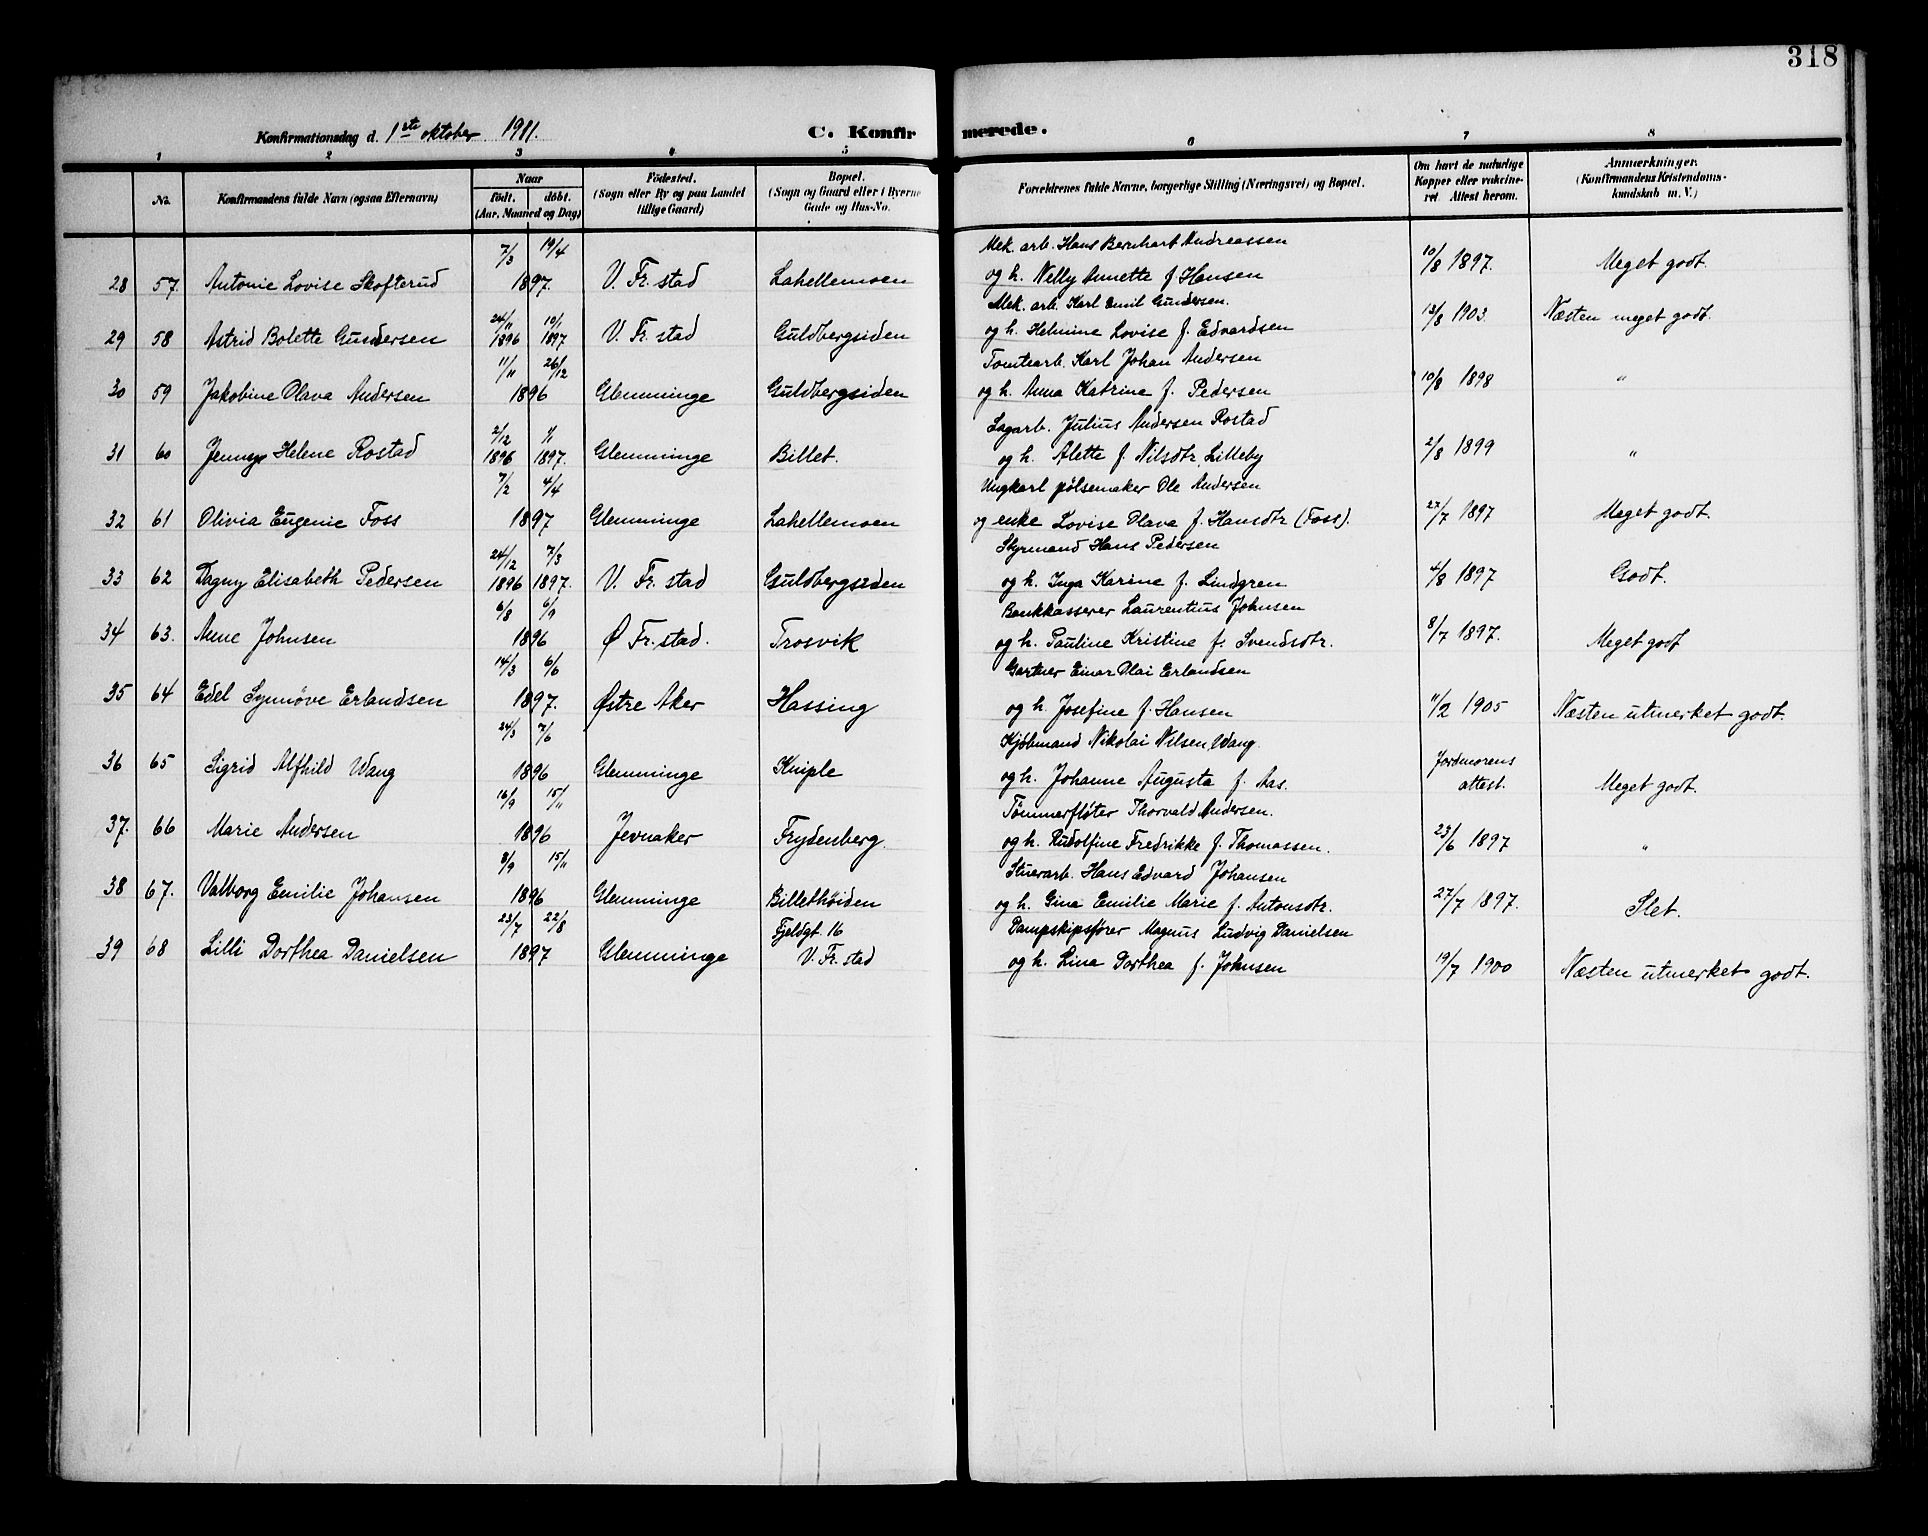 318
Konfirmationsdag d. 1ste oktober 1911.
C. Konfirmerede.
1 2 3 4 5 6 7 8
No. Konfirmandens fulde Navn (ogsaa Efternavn) Naar født. døbt. (Aar, Maaned og Dag) Fødested. (Sogn eller By og paa Landet tillige Gaard) Bopæl. (Sogn og Gaard eller i Byerne Gade og Hus-No. Forældrenes fulde Navne, borgerlige Stilling (Næringsvei) og Bopæl. Om havt de naturlige Kopper eller vakcineret Attest herom. Anmærkninger. (Konfirmandens Kristendomskundskab m. V.)
7/3 19/4 Mek. arb. Hans Bernhart Andreassen
28 57. Antonie Lovise Skofterud 1897. V. Fr. stad Lahellemoen og h. Nelly Annette f. Hansen 10/8 1897. Meget godt.
24/11 10/1 Mek. arb. Karl Emil Gundersen.
29 58 Astrid Bolette Gundersen 1896 1897 V. Fr. stad Guldbergsiden og h. Helmine Lovise f. Edvardsen 13/8 1903. Næsten meget godt.
11/11 26/12 Tomtearb. Karl Johan Andersen
30 59 Jakobine Olava Andersen 1896 Glemminge Guldbergsiden og h. Anna Katrine f. Pedersen 10/8 1898 "
2/12 1/1 Sagarb. Julius Andersen Rostad
31 60 Jenny Helene Rostad 1896 1897. Glemminge Billet. og h. Alette f. Nilsdtr. Lilleby 2/8 1899 "
7/2 4/4 Ungkarl pølsemaker Ole Andersen
32 61 Olivia Eugenie Foss 1897 Glemminge Lahellemoen og enke Lovise Olava f. Hansdtr (Foss). 27/7 1897 Meget godt
24/12 7/3 Styrmand Hans Pedersen
33 62 Dagny Elisabeth Pedersen 1896 1897. V. Fr. stad Guldbergsiden og h. Inga Karine f. Lindgren 4/8 1897 Godt.
6/8 6/9 Bankkasserer Laurentius Johnsen
34 63. Anne Johnsen 1896 Ø Fr. stad. Trosvik og h. Pauline Kristine f. Svendsdtr. 8/7 1897. Meget godt
14/3 6/6 Gartner Einar Olai Erlandsen
35 64 Edel Synnøve Erlandsen 1897. Østre Aker Hassing og h. Josefine f. Hansen 11/2 1905 Næsten utmerket godt.
24/3 7/6 Kjøbmand Nikolai Nilsen Wang.
36 65 Sigrid Alfhild Wang 1896 Glemminge Kniple og h. Johanne Augusta f. Aas. Jordmorens attest. Meget godt.
16/9 15/11 Tømmerfløter Thorvald Andersen.
37. 66 Marie Andersen 1896 Jevnaker Frydenberg og h. Rudolfine Fredrikke f. Thomassen. 23/6 1897 "
8/9 15/11 Stuerarb. Hans Edvard Johansen
38 67. Valborg Emilie Johansen 1896 Glemminge Billethøiden og h. Gina Emilie Marie f. Antonsdtr. 27/7 1897. Slet.
23/7 22/8 Fjeldgt. 16 Dampskipsfører Magnus Ludvig Danielsen
39 68 Lilli Dorthea Danielsen 1897 Glemminge V. Fr. stad og h. Lina Dorthea f. Johnsen 19/7 1900 Næsten utmerket godt.